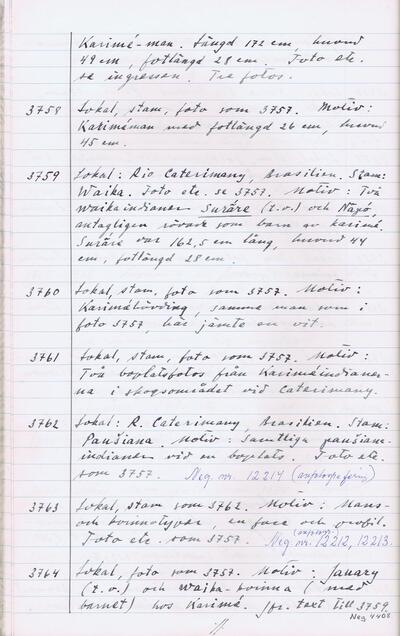 Karimé-man. Längd 172 cm, huvud
49 cm, fotlängd 28 cm. Foto etc.
se ingressen. Tre fotos.
3758 Lokal, stam, foto som 3757. Motiv:
Kariméman med fotlängd 26 cm, huvud
45 cm.
3759 Lokal: Rio Caterimany, Brasilien. Stam:
Waika. Foto etc. se 3757. Motiv: Två
waikaindianer Suräre (t.v.) och Näpó,
antagligen rövade som barn av karimé.
Suräre var 162,5 cm lång, huvud 44
cm, fotlängd 28 cm.
3760 Lokal, stam, foto som 3757. Motiv:
Kariméhövding, samma man som i
foto 3757, här jämte en vit.
3761 Lokal, stam, foto som 3757. Motiv:
Två boplatsfotos från Kariméindianer-
na i skogsområdet vid Caterimany.
3762 Lokal: R. Caterimany, Brasilien. Stam:
Paušiana. Motiv: Samtliga paušiana-
indianer vid en boplats. Foto etc.
som 3757. Neg. nr. 12214
3763 Lokal, stam som 3762. Motiv: Mans-
och kvinnotyper, en face och profil.
Foto etc. som 3757. Neg. nr. 12212, 12213.
3764 Lokal, foto som 3757. Motiv: January
(t.v.) och waika-kvinna (med
barnet) hos Karimé. Jfr. text till 3759.
Neg 4408